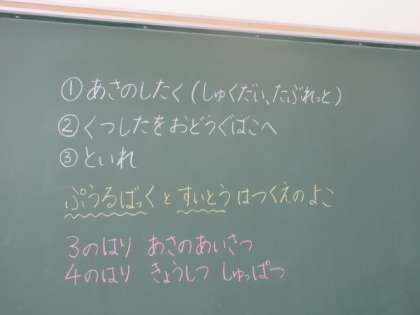 ①あさのしたく(しゅくだい、たぶれっと)
②くつしたをおどうぐばこへ
③といれ
ぷうるばっくとすいとうはつくえのよこ
3のはり あさのあいさつ
4のはり きょうしつ しゅっぱつ